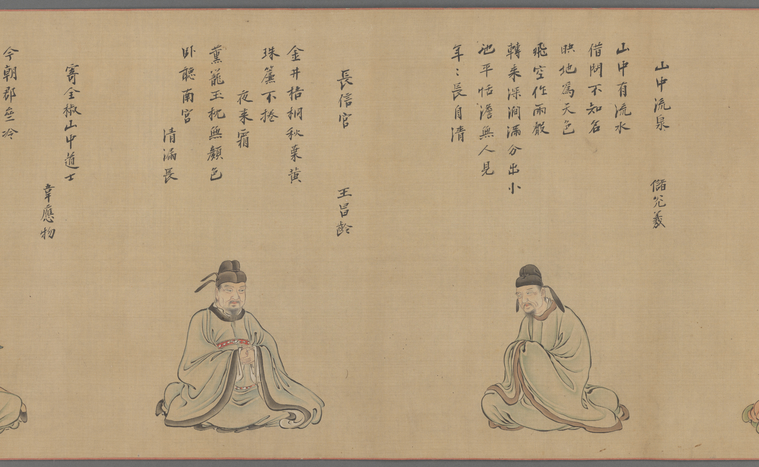 山中流泉 儲光羲
山中有流水
借問不知名
映地為天色
飛空作雨聲
轉來深澗滿分出小
池平恬澹無人見
年〻長自清
長信宮 王昌齡
金井梧桐秋葉黄
珠簾不捲
夜来霜
薫籠玉枕無顔色
卧聽南宮
清漏長
寄全椒山中道士
韋應物
今朝郡齋冷